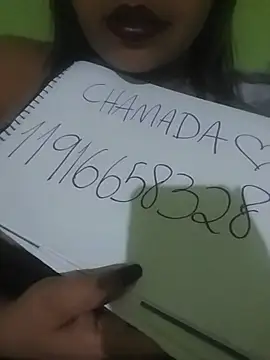 CHAMADA ♡
11916658328